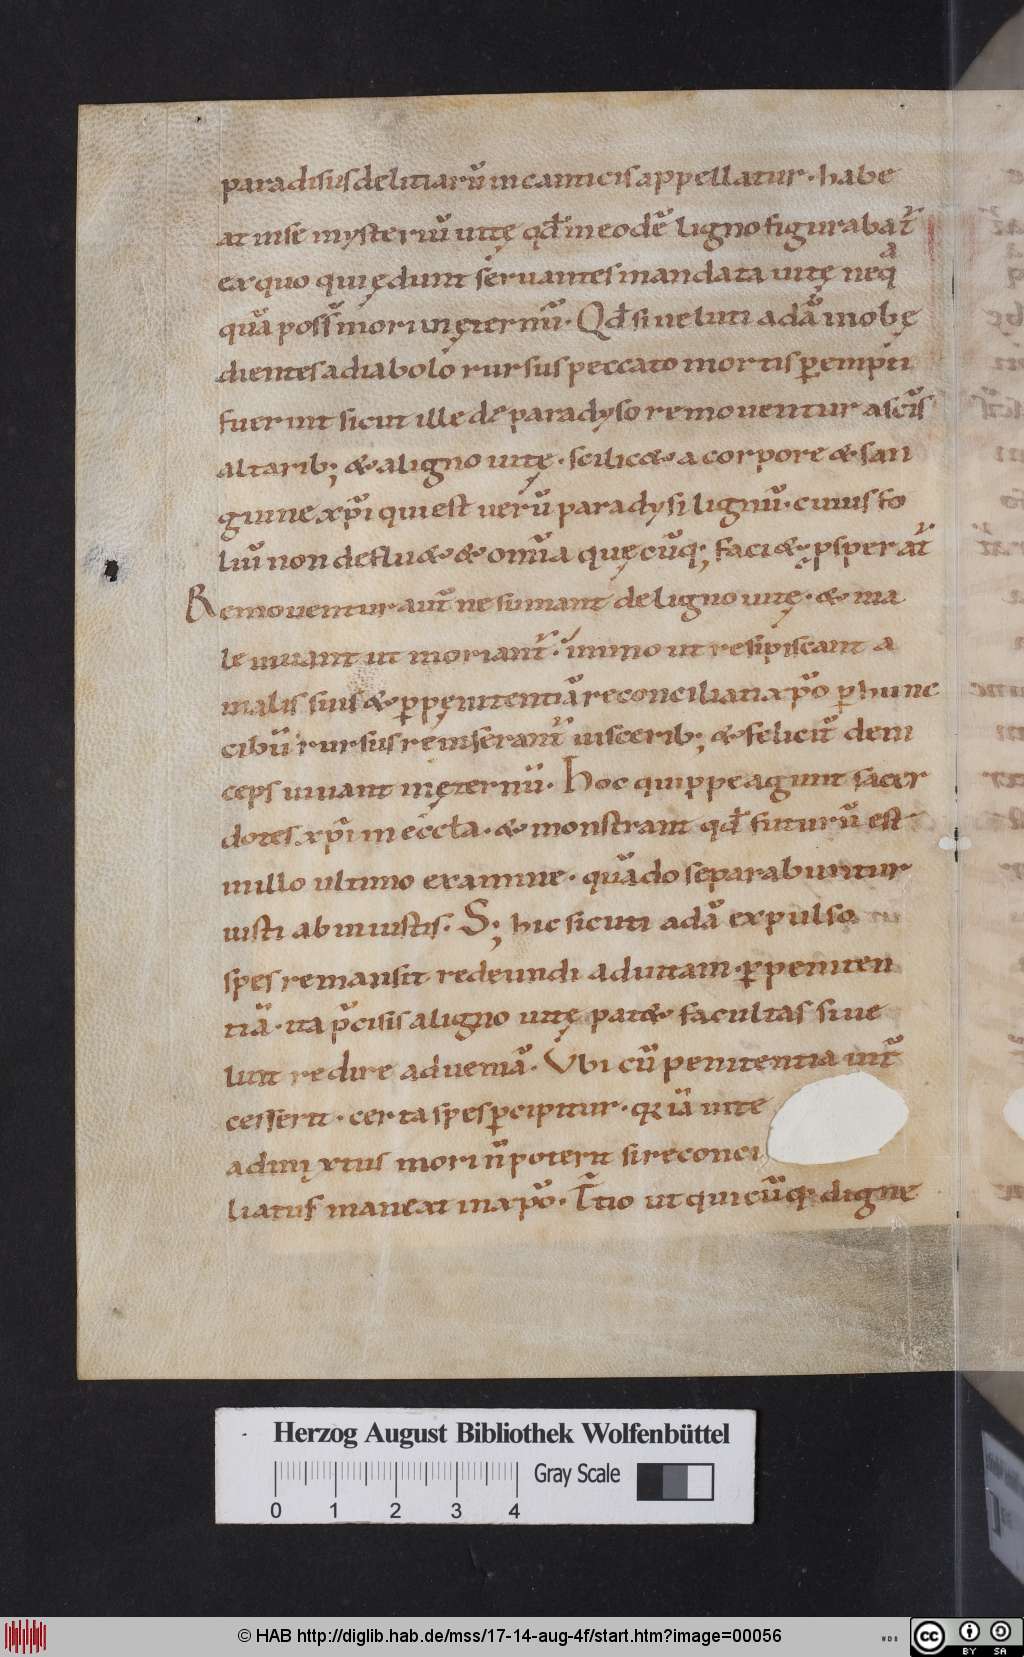 paradisus delitiarū in canticis appellatur · habe
at in se mysteriū uitę qd̄ in eodē ligno figurabat᷑
ex quo qui ędunt seruantes mandata uitę neqᵃ
quā poss̄ mori in ęternū · Qd̄ si ueluti adā inobę
dientes a diabolo rursus peccato mortis p̄empti
fuerint sicut ille de paradyso remouentur a sc̄is
altarib; & a ligno uitę · scilic& a corpore & san
guine xp̄i qui est uerū paradysi lignū · cuius fo
liū non deflu& & om̄ia quęcūq; faci& ꝓsperat᷑
Remouentur aut̄ ne sumant de ligno uitę · & ma
le uiuant ut moriant᷑ · immo ut resipiscant a
malis suis & ꝑ pęnitentiā reconciliati xp̄o ꝑ hunc
cibū rursus reinserant᷑ uiscerib; & feliciū dein
ceps uiuant in ęternū · Hoc quippe agunt sacer
dotes xp̄i in eccl̄a · & monstrant qd̄ futurū est
in illo ultimo examine · quādo separabuntur
iusti ab iniustis · S; hic sicuti adā expulso
spes remansit redeundi ad uitam · ꝑ peniten
tiā · ita p̄cisis a ligno uitę pat& facultas si ue
lint redire ad ueniā · Vbi cū penitentia int̄
cesserit · certa spes p̄cipitur · quia uite
adiunxtus mori n̄ poterit si reconci
liatus maneat in xp̄o · T̄tio ut quicūq; digne
Herzog August Bibliothek Wolfenbüttel
Gray Scale
0 1 2 3 4
© HAB http://diglib.hab.de/mss/17-14-aug-4f/start.htm?image=00056
WDB
cc BY SA